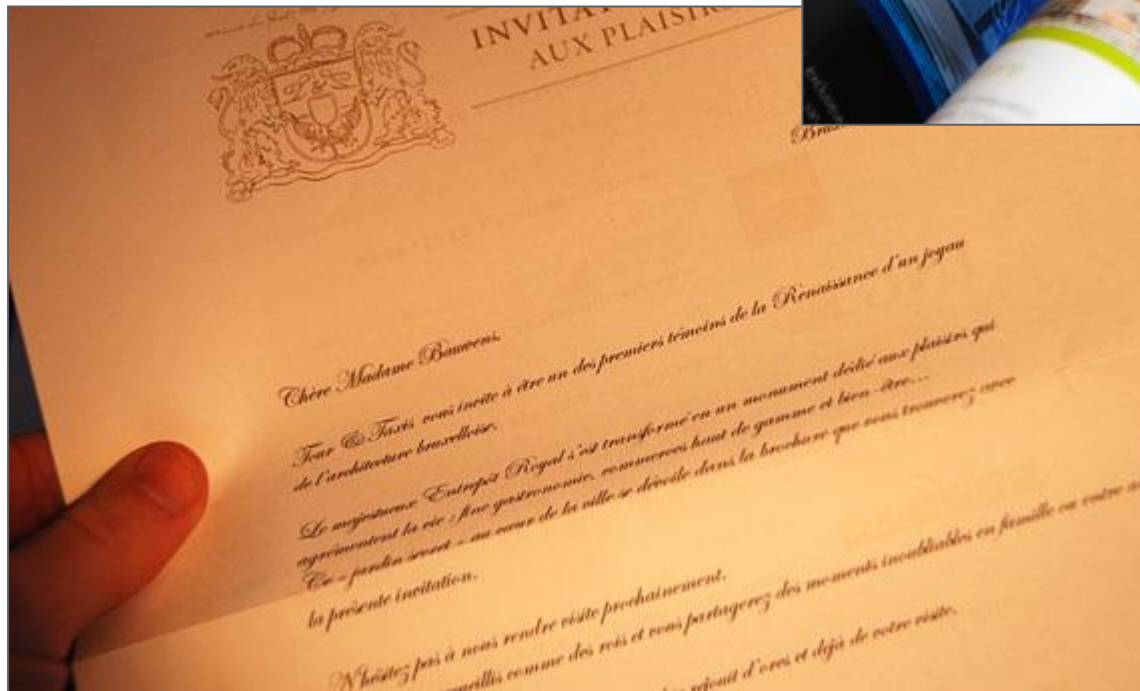 INVITAT
AUX PLAISIR
Chère Madame Bauwens,
Tour & Taxis vous invite à être un des premiers témoins de la Renaissance d'un joyau
de l'architecture bruxelloise.
Le majestueux Entrepôt Royal s'est transformé en un monument dédié aux plaisirs qui
agrémentent la vie : fine gastronomie, commerces haut de gamme et bien-être...
Ce « jardin secret » au cœur de la ville se dévoile dans la brochure que vous trouverez avec
la présente invitation.
N'hésitez pas à nous rendre visite prochainement.
comme des rois et vous partagerez des moments inoubliables en famille ou votre
réjouit d'ores et déjà de votre visite.